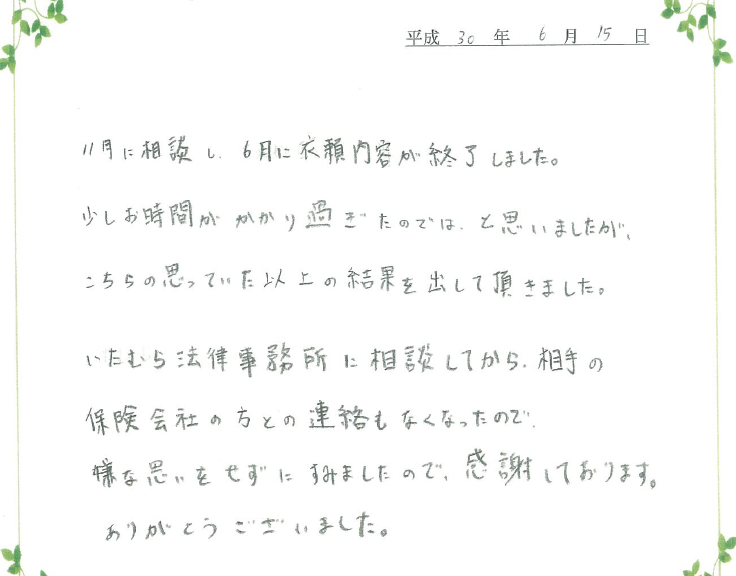 平成 30 年 6 月 15 日
11月に相談し、6月に衣頼内容が終了しました。
少しお時間がかかり過ぎたのでは、と思いましたが、
こちらの思っていた以上の結果を出して頂きました。
いたむら法律事務所に相談してから、相手の
保険会社の方との連絡もなくなったので、
嫌な思いをせずにすみましたので、感謝しております。
ありがとうございました。